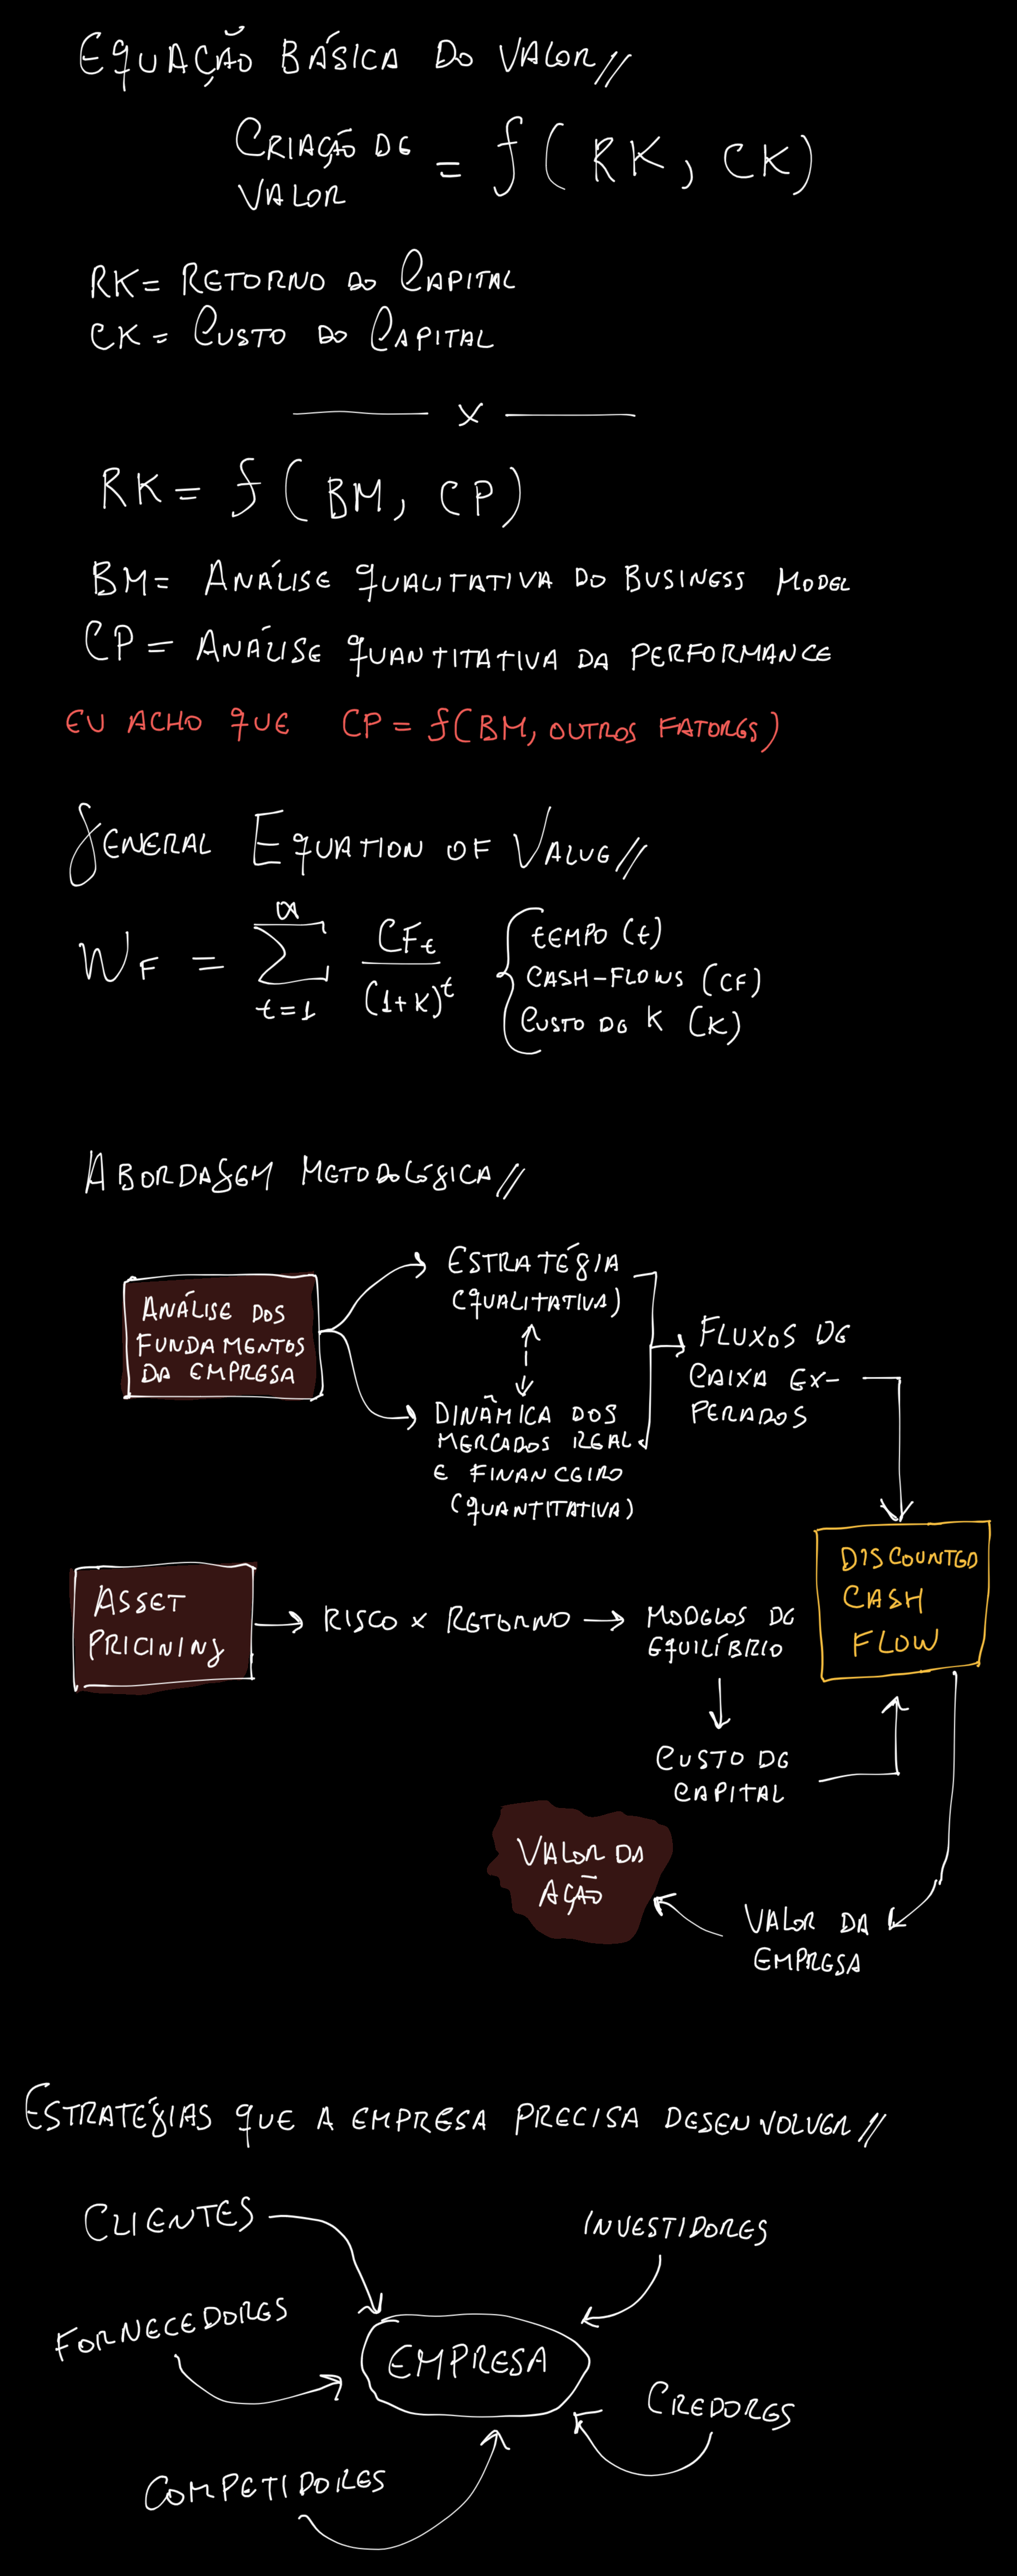 EQUAÇÃO BÁSICA DO VALOR//
CRIAÇÃO DE
VALOR
= f(RK, CK)
RK = RETORNO DO CAPITAL
CK = CUSTO DO CAPITAL
x
RK = f(BM, CP)
BM = ANÁLISE QUALITATIVA DO BUSINESS MODEL
CP = ANÁLISE QUANTITATIVA DA PERFORMANCE
EU ACHO QUE CP = f(BM, OUTROS FATORES)
GENERAL EQUATION OF VALUE//
W_F = ∑_{t=1}^{∞} CF_t / (1+K)^t
TEMPO (t)
CASH-FLOWS (CF)
CUSTO DE K (K)
ABORDAGEM METODOLÓGICA//
ANÁLISE DOS
FUNDAMENTOS
DA EMPRESA
ESTRATÉGIA
(QUALITATIVA)
DINÂMICA DOS
MERCADOS REAL
E FINANCEIRO
(QUANTITATIVA)
FLUXOS DE
CAIXA EX-
PERADOS
DISCOUNTED
CASH
FLOW
ASSET
PRICINING
RISCO x RETORNO
MODELOS DE
EQUILÍBRIO
CUSTO DE
CAPITAL
VALOR DA
AÇÃO
VALOR DA
EMPRESA
ESTRATÉGIAS QUE A EMPRESA PRECISA DESENVOLVER//
CLIENTES
INVESTIDORES
FORNECEDORES
EMPRESA
CREDORES
COMPETIDORES